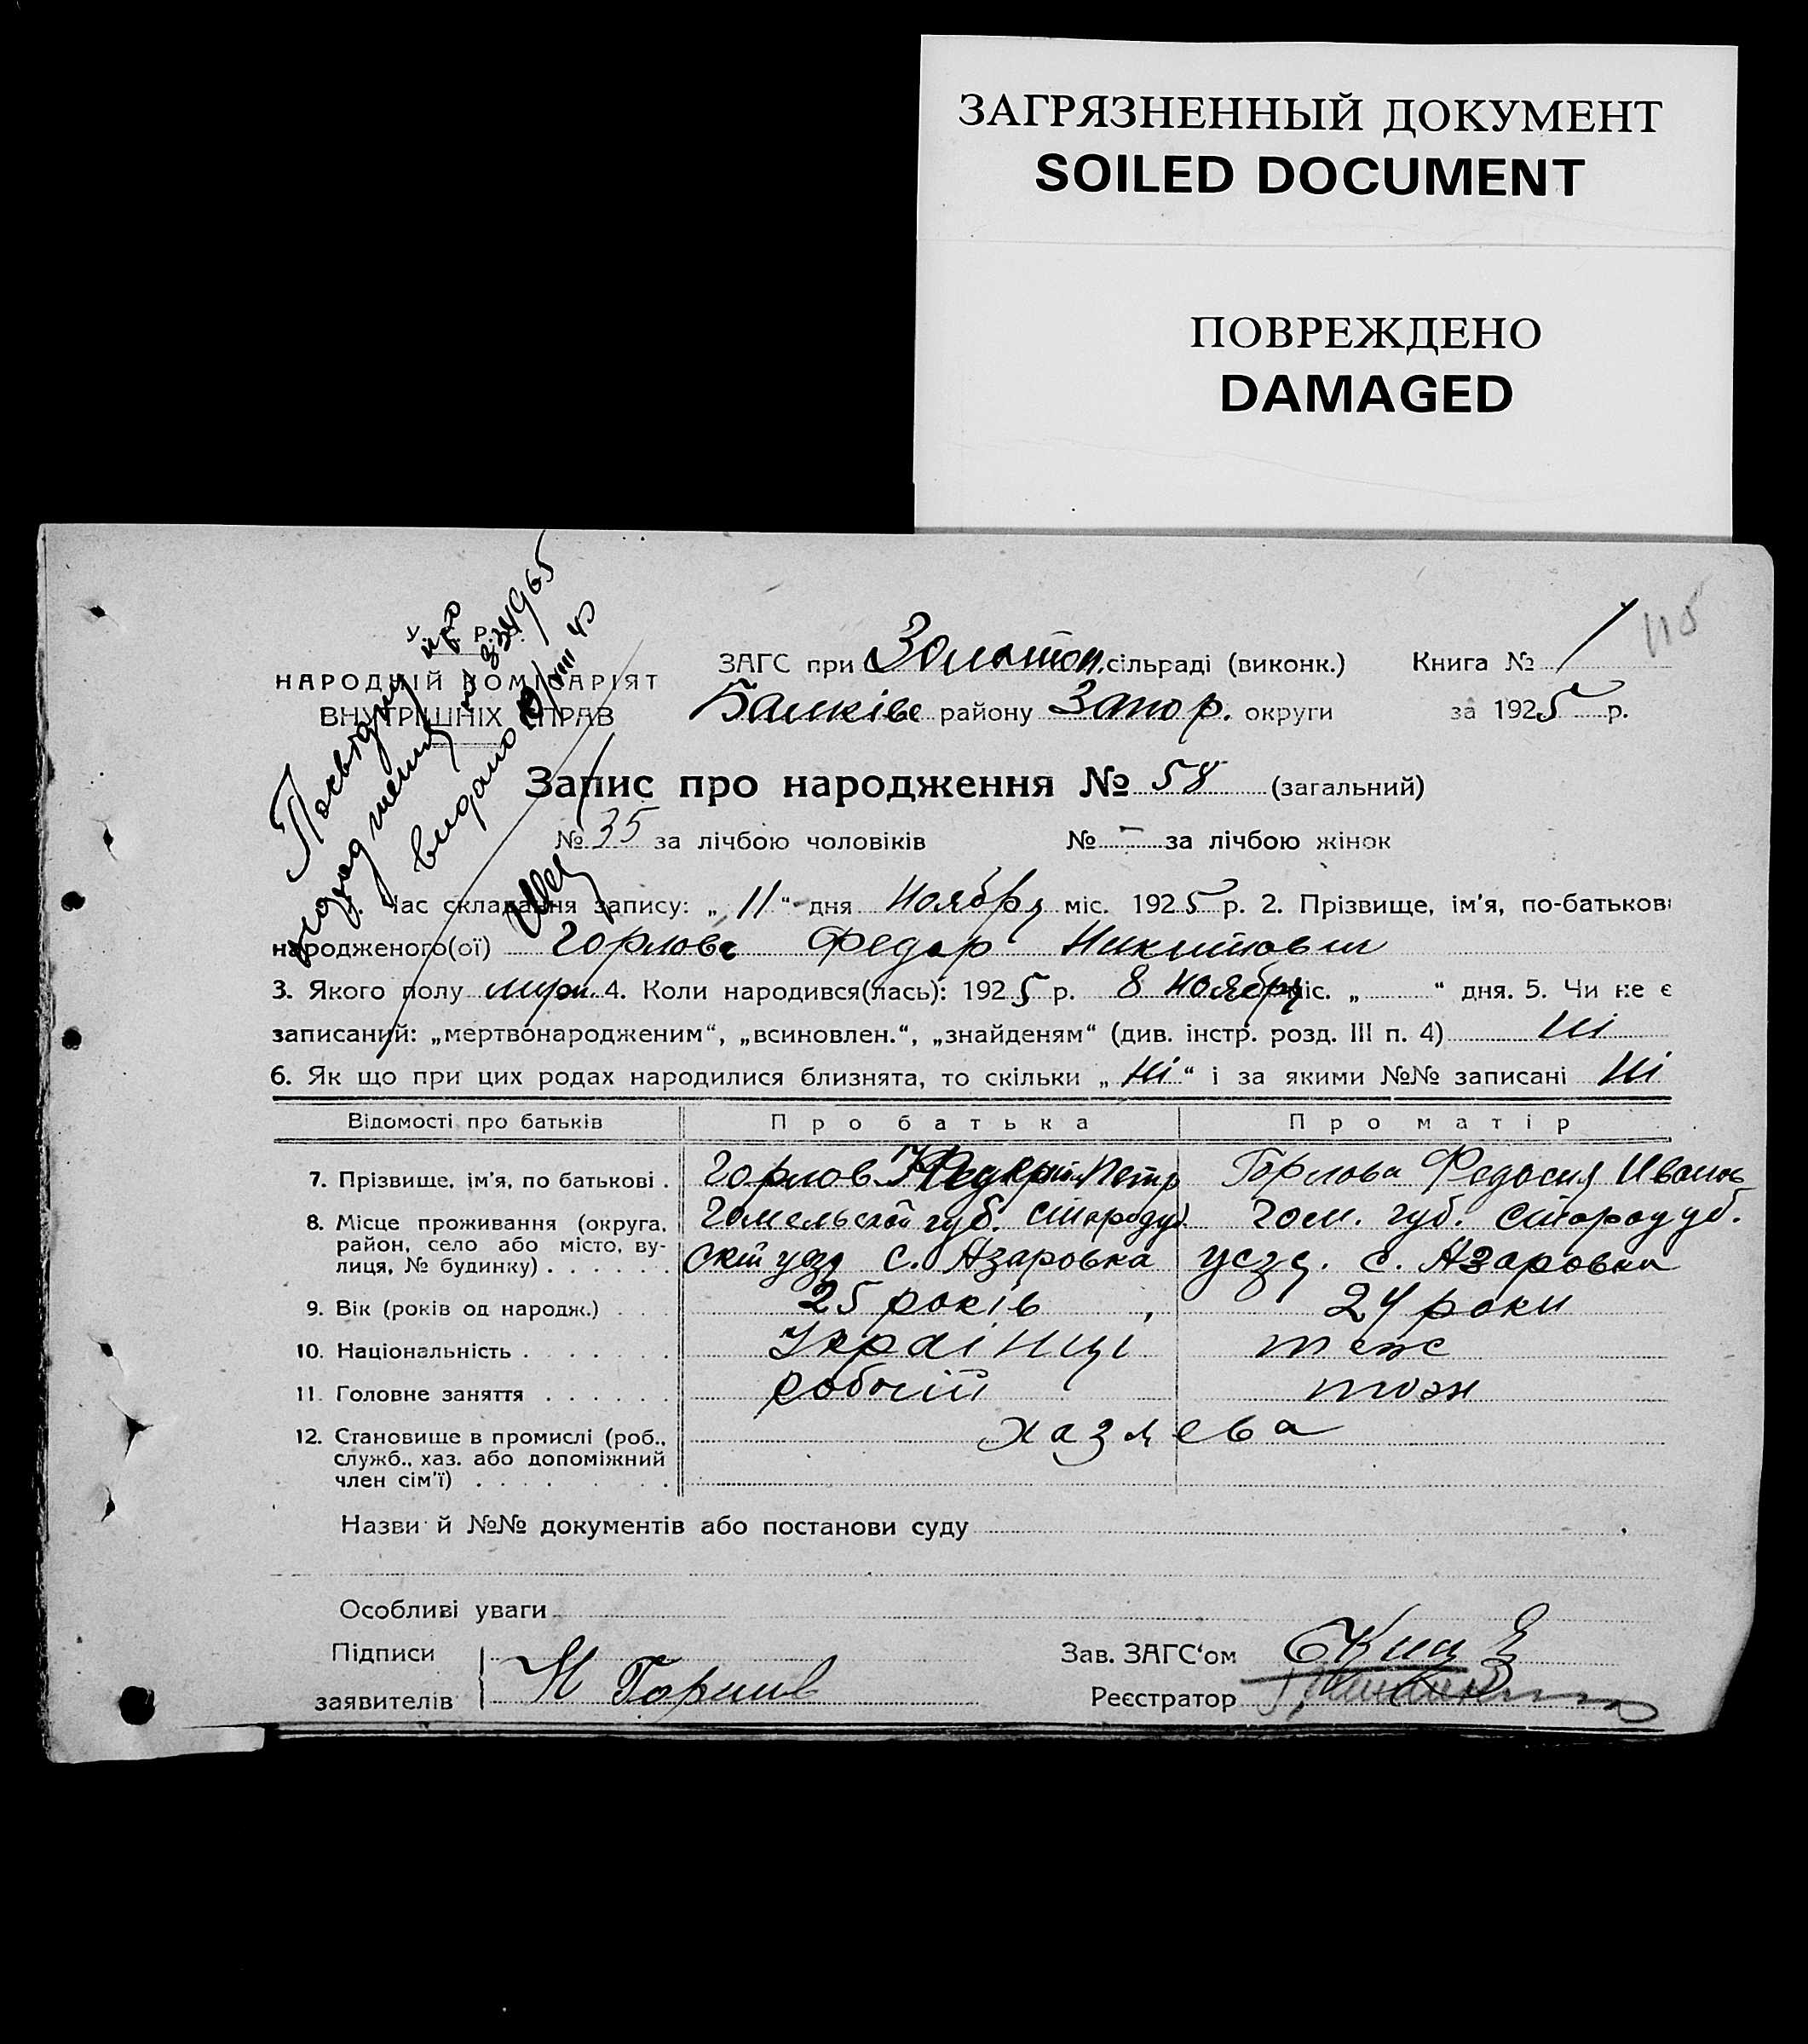 ЗАГРЯЗНЕННЫЙ ДОКУМЕНТ
SOILED DOCUMENT
ПОВРЕЖДЕНО
DAMAGED
115
У. Р.
НАРОДНІЙ КОМІСАРІЯТ
ВНУТРІШНІХ СПРАВ
ЗАГС при Золотоп. сільраді (виконк.) Книга № 1
Балків району Запор. округи за 1925 р.
видано
Запис про народження № 58 (загальний)
№ 35 за лічбою чоловіків № - за лічбою жінок
Час складання запису: „ 11 “ дня Ноября міс. 1925 р. 2. Прізвище, ім'я, по-батькові
народженого(ої) Горлов Федор Никитович
3. Якого полу 4. Коли народився(лась): 1925 р. 8 Ноября міс. „ “ дня. 5. Чи не є
записаний: „мертвонародженим“, „всиновлен.“, „знайденям“ (див. інстр. розд. III п. 4) Ні
6. Як що при цих родах народилися близнята, то скільки „ Ні “ і за якими №№ записані Ні
Відомості про батьків Про батька Про матір
7. Прізвище, ім'я, по батькові . Горлов Петр Горлова Федосия Иванов
8. Місце проживання (округа, район, село або місто, вулиця, № будинку) . . . . . .
Гомельской губ. Стародуб гом. губ. Стародуб.
ский узд с. Азаровка уезд. с. Азаровка
9. Вік (років од народж.) . . . 25 років 24 роки
10. Національність . . . . . . . Українці теж
11. Головне заняття . . . . . . робочий тож
12. Становище в промислі (роб., служб., хаз. або допоміжний член сім'ї) . . . . . . . хазяева
Назви й №№ документів або постанови суду
Особливі уваги
Підписи Зав. ЗАГС'ом
заявителів Н Горлов Реєстратор